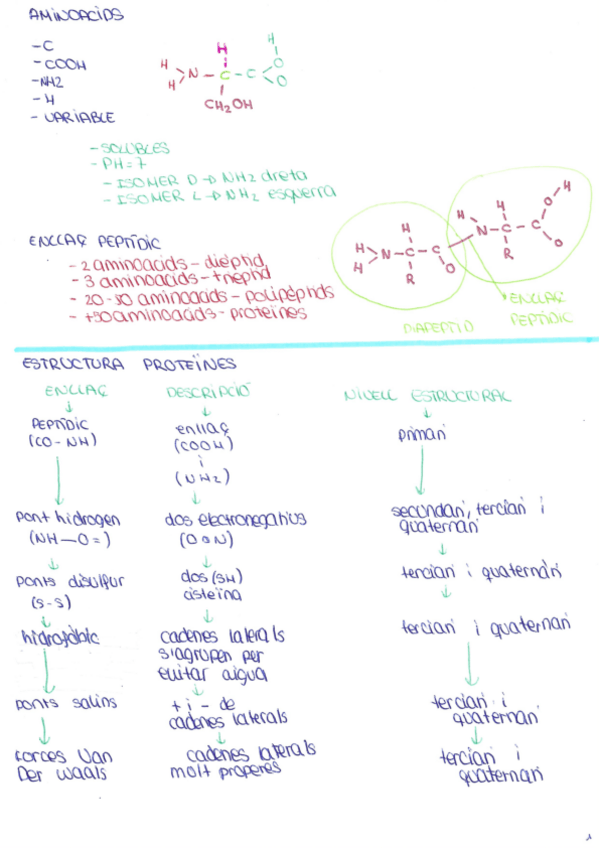 AMINOACIDS
-C
-COOH
-NH2
-H
- VARIABLE
H
H
H
N
C
C
O
O
H
CH2OH
-SOLUBLES
-PH=7
-ISOMER D→ NH2 dreta
-ISOMER L→ NH2 esquerra
ENLLAÇ PEPTÍDIC
- 2 aminoacids - dièptid
- 3 aminoacids - trieptid
- 20-50 aminoacids - polipèptids
- +50 aminoacids - proteïnes
H
H
N
H
C
R
C
O
H
N
H
C
R
C
O
H
O
DIAPEPTID
ENLLAÇ
PEPTÍDIC
ESTRUCTURA PROTEÏNES
ENLLAÇ DESCRIPCIÓ NIVELL ESTRUCTURAL
PEPTÍDIC
(CO-NH)
enllaç
(COOH)
i
(NH2)
primari
pont hidrogen
(NH-O=)
dos electronegatius
(O o N)
secundari, terciari i
quaternari
ponts disulfur
(S-S)
dos (SH)
cisteïna
terciari i quaternari
hidrofòbic
cadenes laterals
s'agrupen per
evitar aigua
terciari i quaternari
ponts salins
+ i - de
cadenes laterals
terciari i
quaternari
forces Van
Der waals
cadenes laterals
molt properes
terciari i
quaternari
1